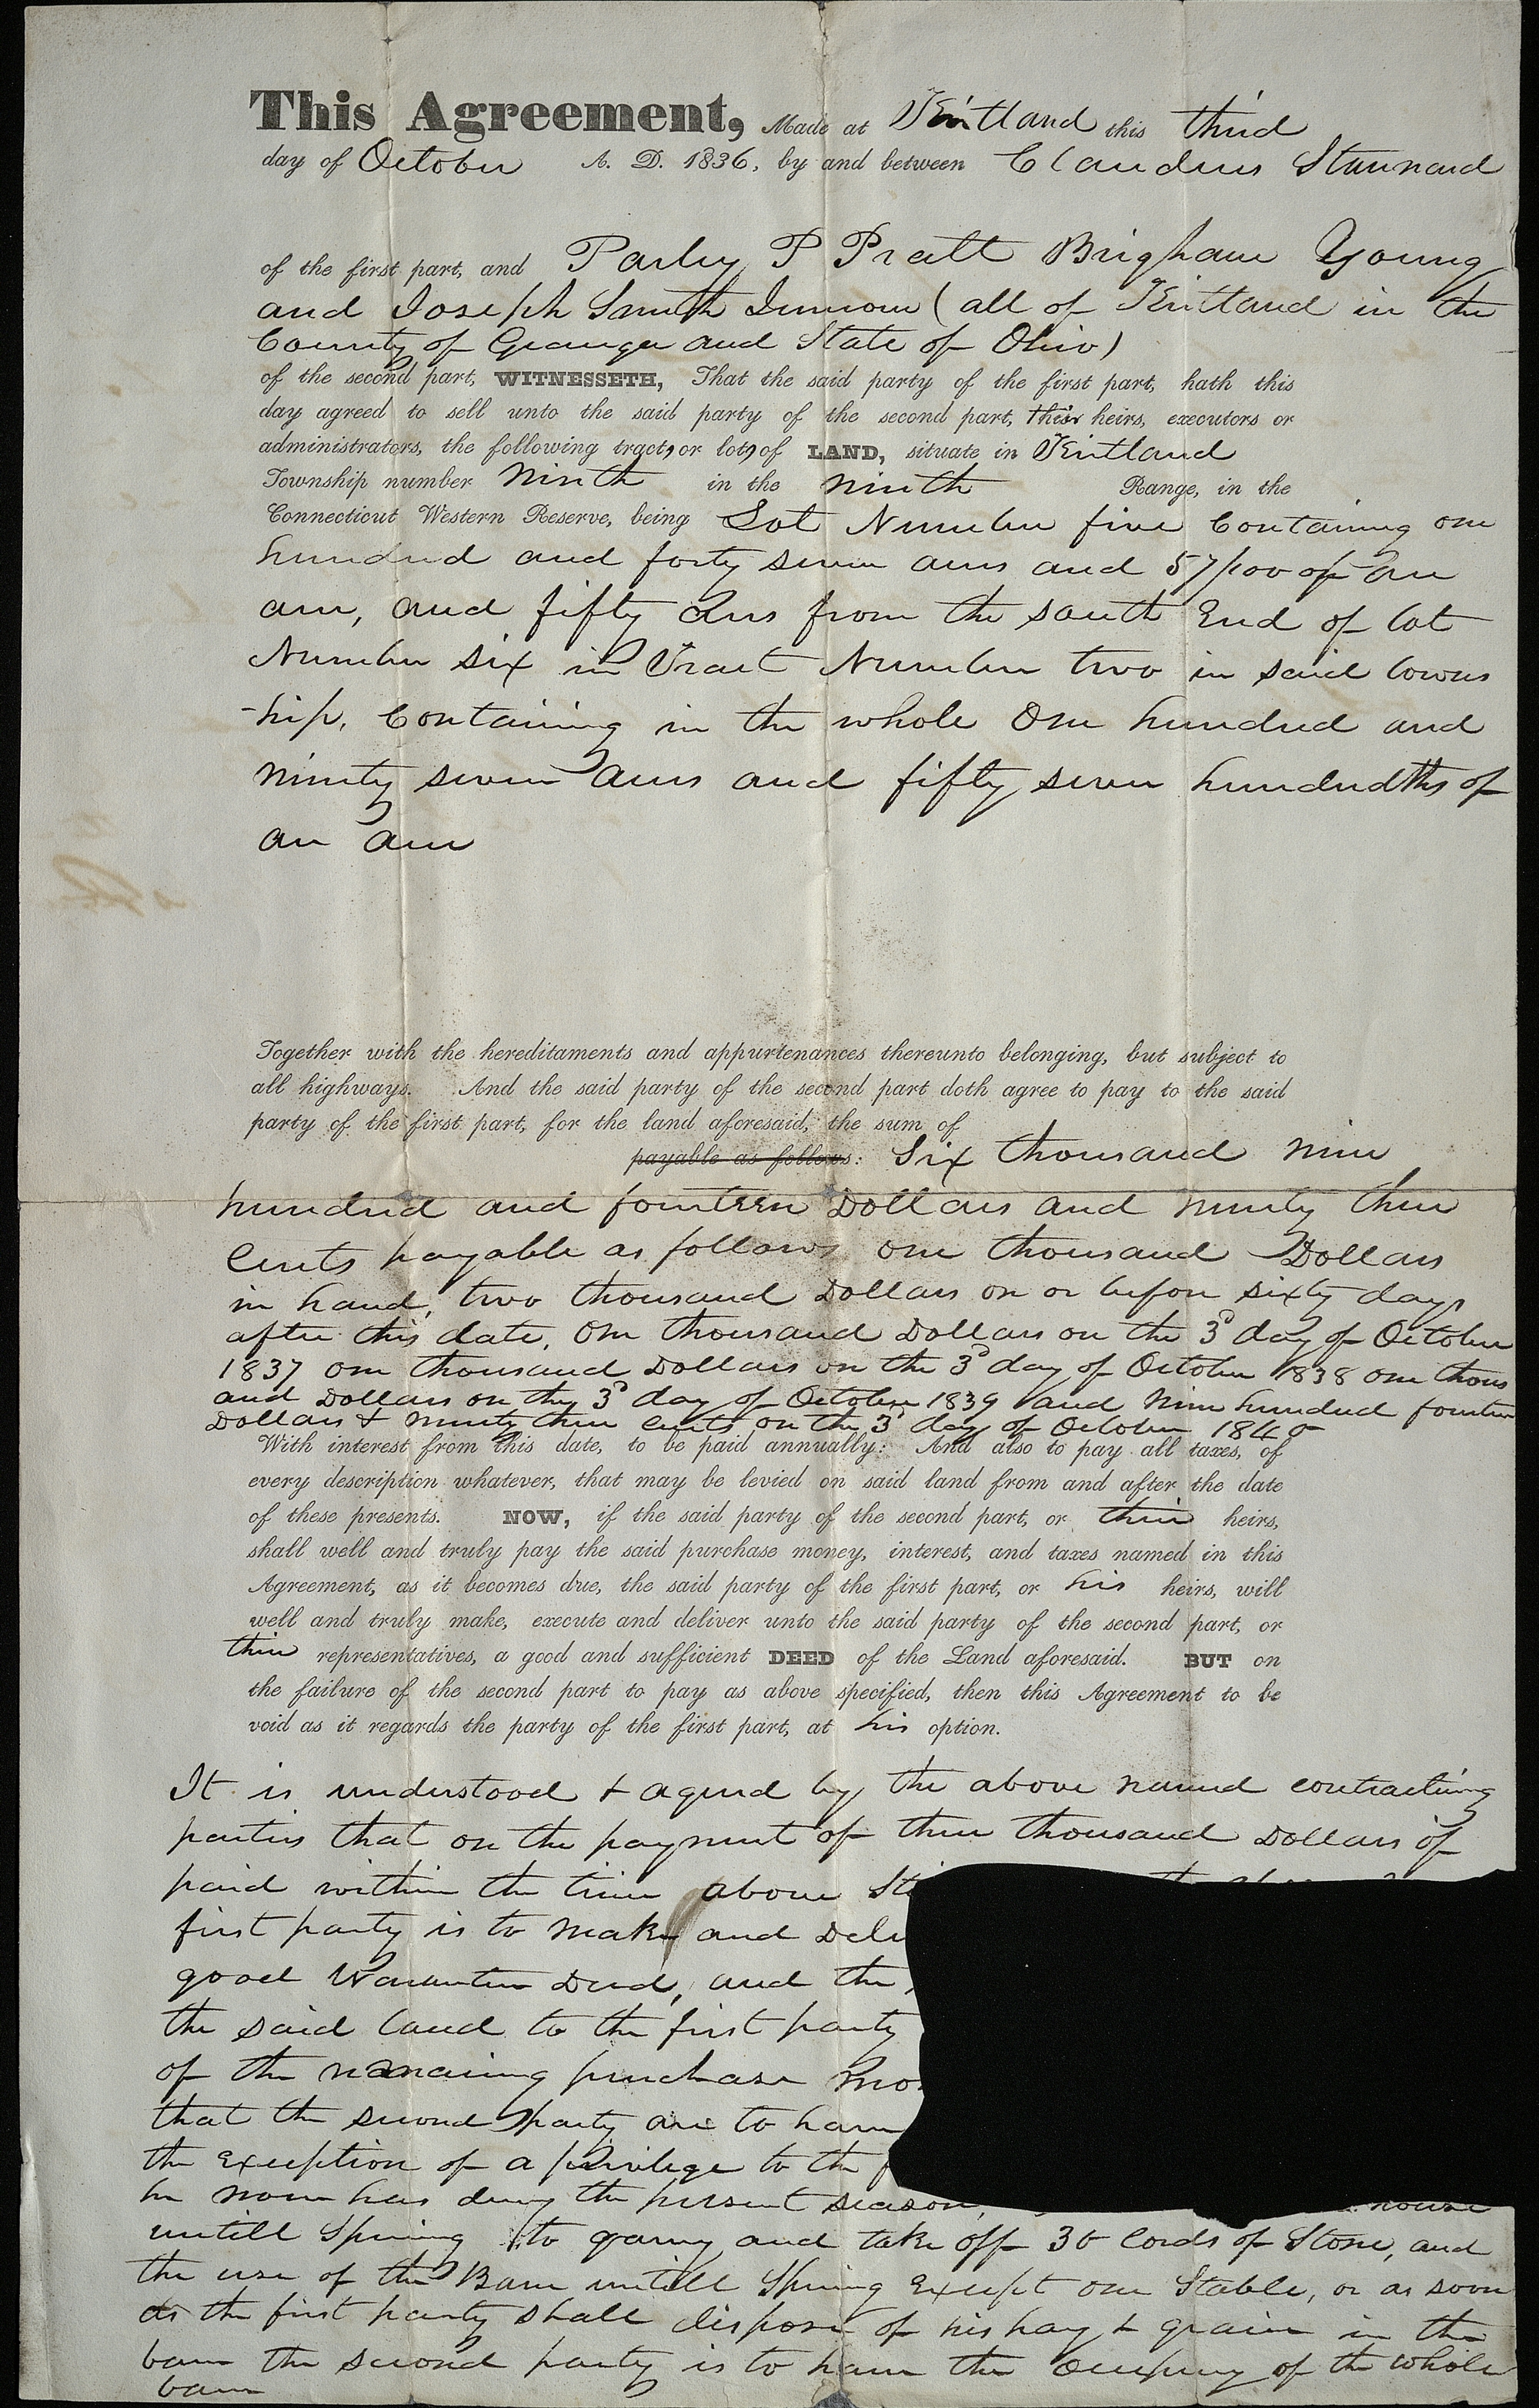 This Agreement, Made at Kirtland this third
day of October A. D. 1836, by and between Claudius Stannard
of the first part, and Parley P Pratt Brigham Young
and Joseph Smith Junior (all of Kirtland in the
County of Geauga and State of Ohio)
of the second part, WITNESSETH, That the said party of the first part, hath this
day agreed to sell unto the said party of the second part, their heirs, executors or
administrators, the following tracts, or lots, of LAND, situate in Kirtland
Township number Ninth in the ninth Range, in the
Connecticut Western Reserve, being Lot Number five Containing one
hundred and forty seven acres and 57/100 of an
acre, and fifty acres from the south End of lot
Number six in Tract Number two in said towns
-hip, Containing in the whole One hundred and
ninety seven acres and fifty seven hundredths of
an acre
Together with the hereditaments and appurtenances thereunto belonging, but subject to
all highways. And the said party of the second part doth agree to pay to the said
party of the first part, for the land aforesaid, the sum of
payable as follows: Six thousand nine
hundred and fourteen Dollars and ninety three
Cents payable as follows one thousand Dollars
in hand, two thousand Dollars on or before sixty days
after this date, One thousand Dollars on the 3d day of October
1837 one thousand Dollars on the 3d day of October 1838 one thous
and Dollars on the 3d day of October 1839 and Nine hundred fourteen
Dollars & ninety three cents on the 3d day of October 1840
With interest from this date, to be paid annually: And also to pay all taxes, of
every description whatever, that may be levied on said land from and after the date
of these presents. NOW, if the said party of the second part, or their heirs,
shall well and truly pay the said purchase money, interest, and taxes named in this
Agreement, as it becomes due, the said party of the first part, or his heirs, will
well and truly make, execute and deliver unto the said party of the second part, or
their representatives, a good and sufficient DEED of the Land aforesaid. BUT on
the failure of the second part to pay as above specified, then this Agreement to be
void as it regards the party of the first part, at his option.
It is understood & agreed by the above named contracting
parties that on the payment of three thousand Dollars if
paid within the time above Sti
first party is to make and Deli
good Warantee Deed, and the
the said land to the first party
of the remaining purchase mon
that the second party are to have
the Exception of a privilege to the f
he now has during the present season, house
untill Spring to quarry and take off 30 Cords of Stone, and
the use of the Barn untill Spring Except one Stable, or as soon
as the first party shall dispose of his hay & grain in the
barn the second party is to have the occupency of the whole
barn